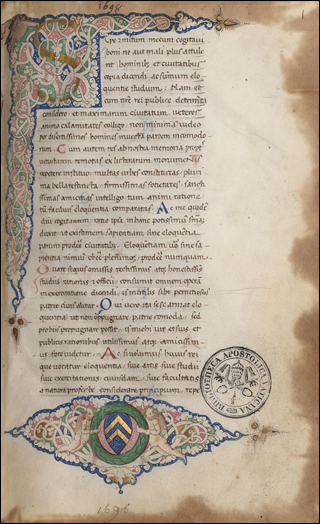 1698
1
Sepe et multum mecum cogitavi
boni ne aut mali plus attule
rit hominibus et civitatibus
copia dicendi ac summum elo
quentie studium. Nam et
cum nostre rei publice detrimenta
considero et maximarum civitatum veteres
animo calamitates colligo non minimam video
per disertissimos homines invectam partem incommodo
rum. Cum autem res ab nostra memoria propter
vetustatem remotas ex litterarum monumentis
repetere instituo multas urbes constitutas pluri
ma bella restincta firmissimas societates sanctis
simas amicitias intelligo tum animi ratione
tum facilius eloquentia comparatas. Ac me quidem
diu cogitantem ratio ipsa in hanc potissimum sententiam
ducit ut existimem sapientiam sine eloquentia
parum prodesse civitatibus. Eloquentiam vero sine sa
pientia nimium obesse plerumque prodesse nunquam.
Quare siquis omissis rectissimis atque honestissimis
studiis rationis et officii consumit omnem operam
in exercitatione dicendi is inutilis sibi perniciosus
patrie civis alitur. Qui vero ita sese armat elo
quentia ut non oppugnare patrie comoda sed
pro his propugnare possit is mihi vir et suis et
publicis rationibus utilissimus atque amicissim
us fore videtur. Ac si volumus huius rei
que vocatur eloquentia sive artis sive studii
sive exercitationis cuiusdam sive facultatis
a natura profecte considerare principium reper
BIBLIOTHECA APOSTOLICA VATICANA
1698